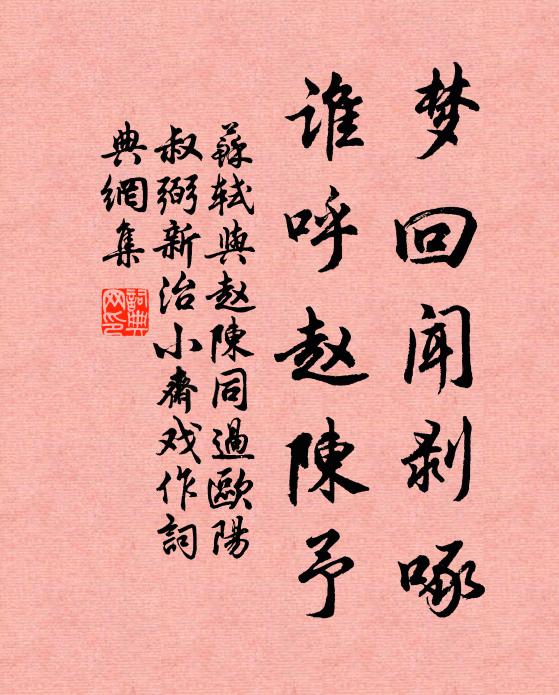 梦回闻剥啄
谁呼赵陳予
蘇轼與赵陳同過歐陽
叔弼新治小齋戏作詞
典網集
詞典网印